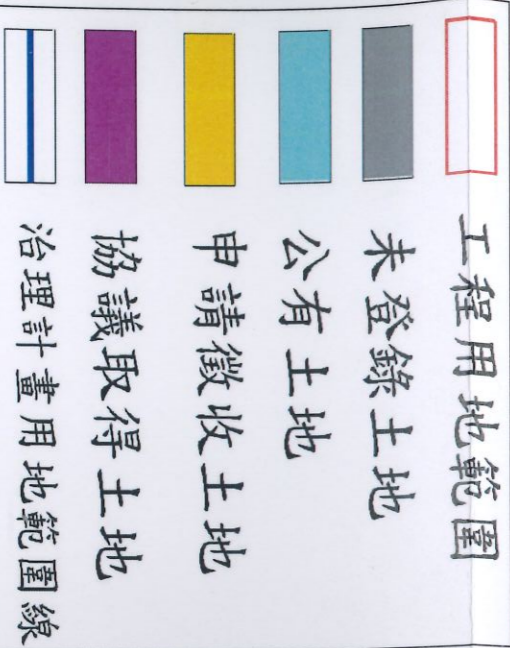 工程用地範圍
未登錄土地
公有土地
申請徵收土地
協議取得土地
治理計畫用地範圍線